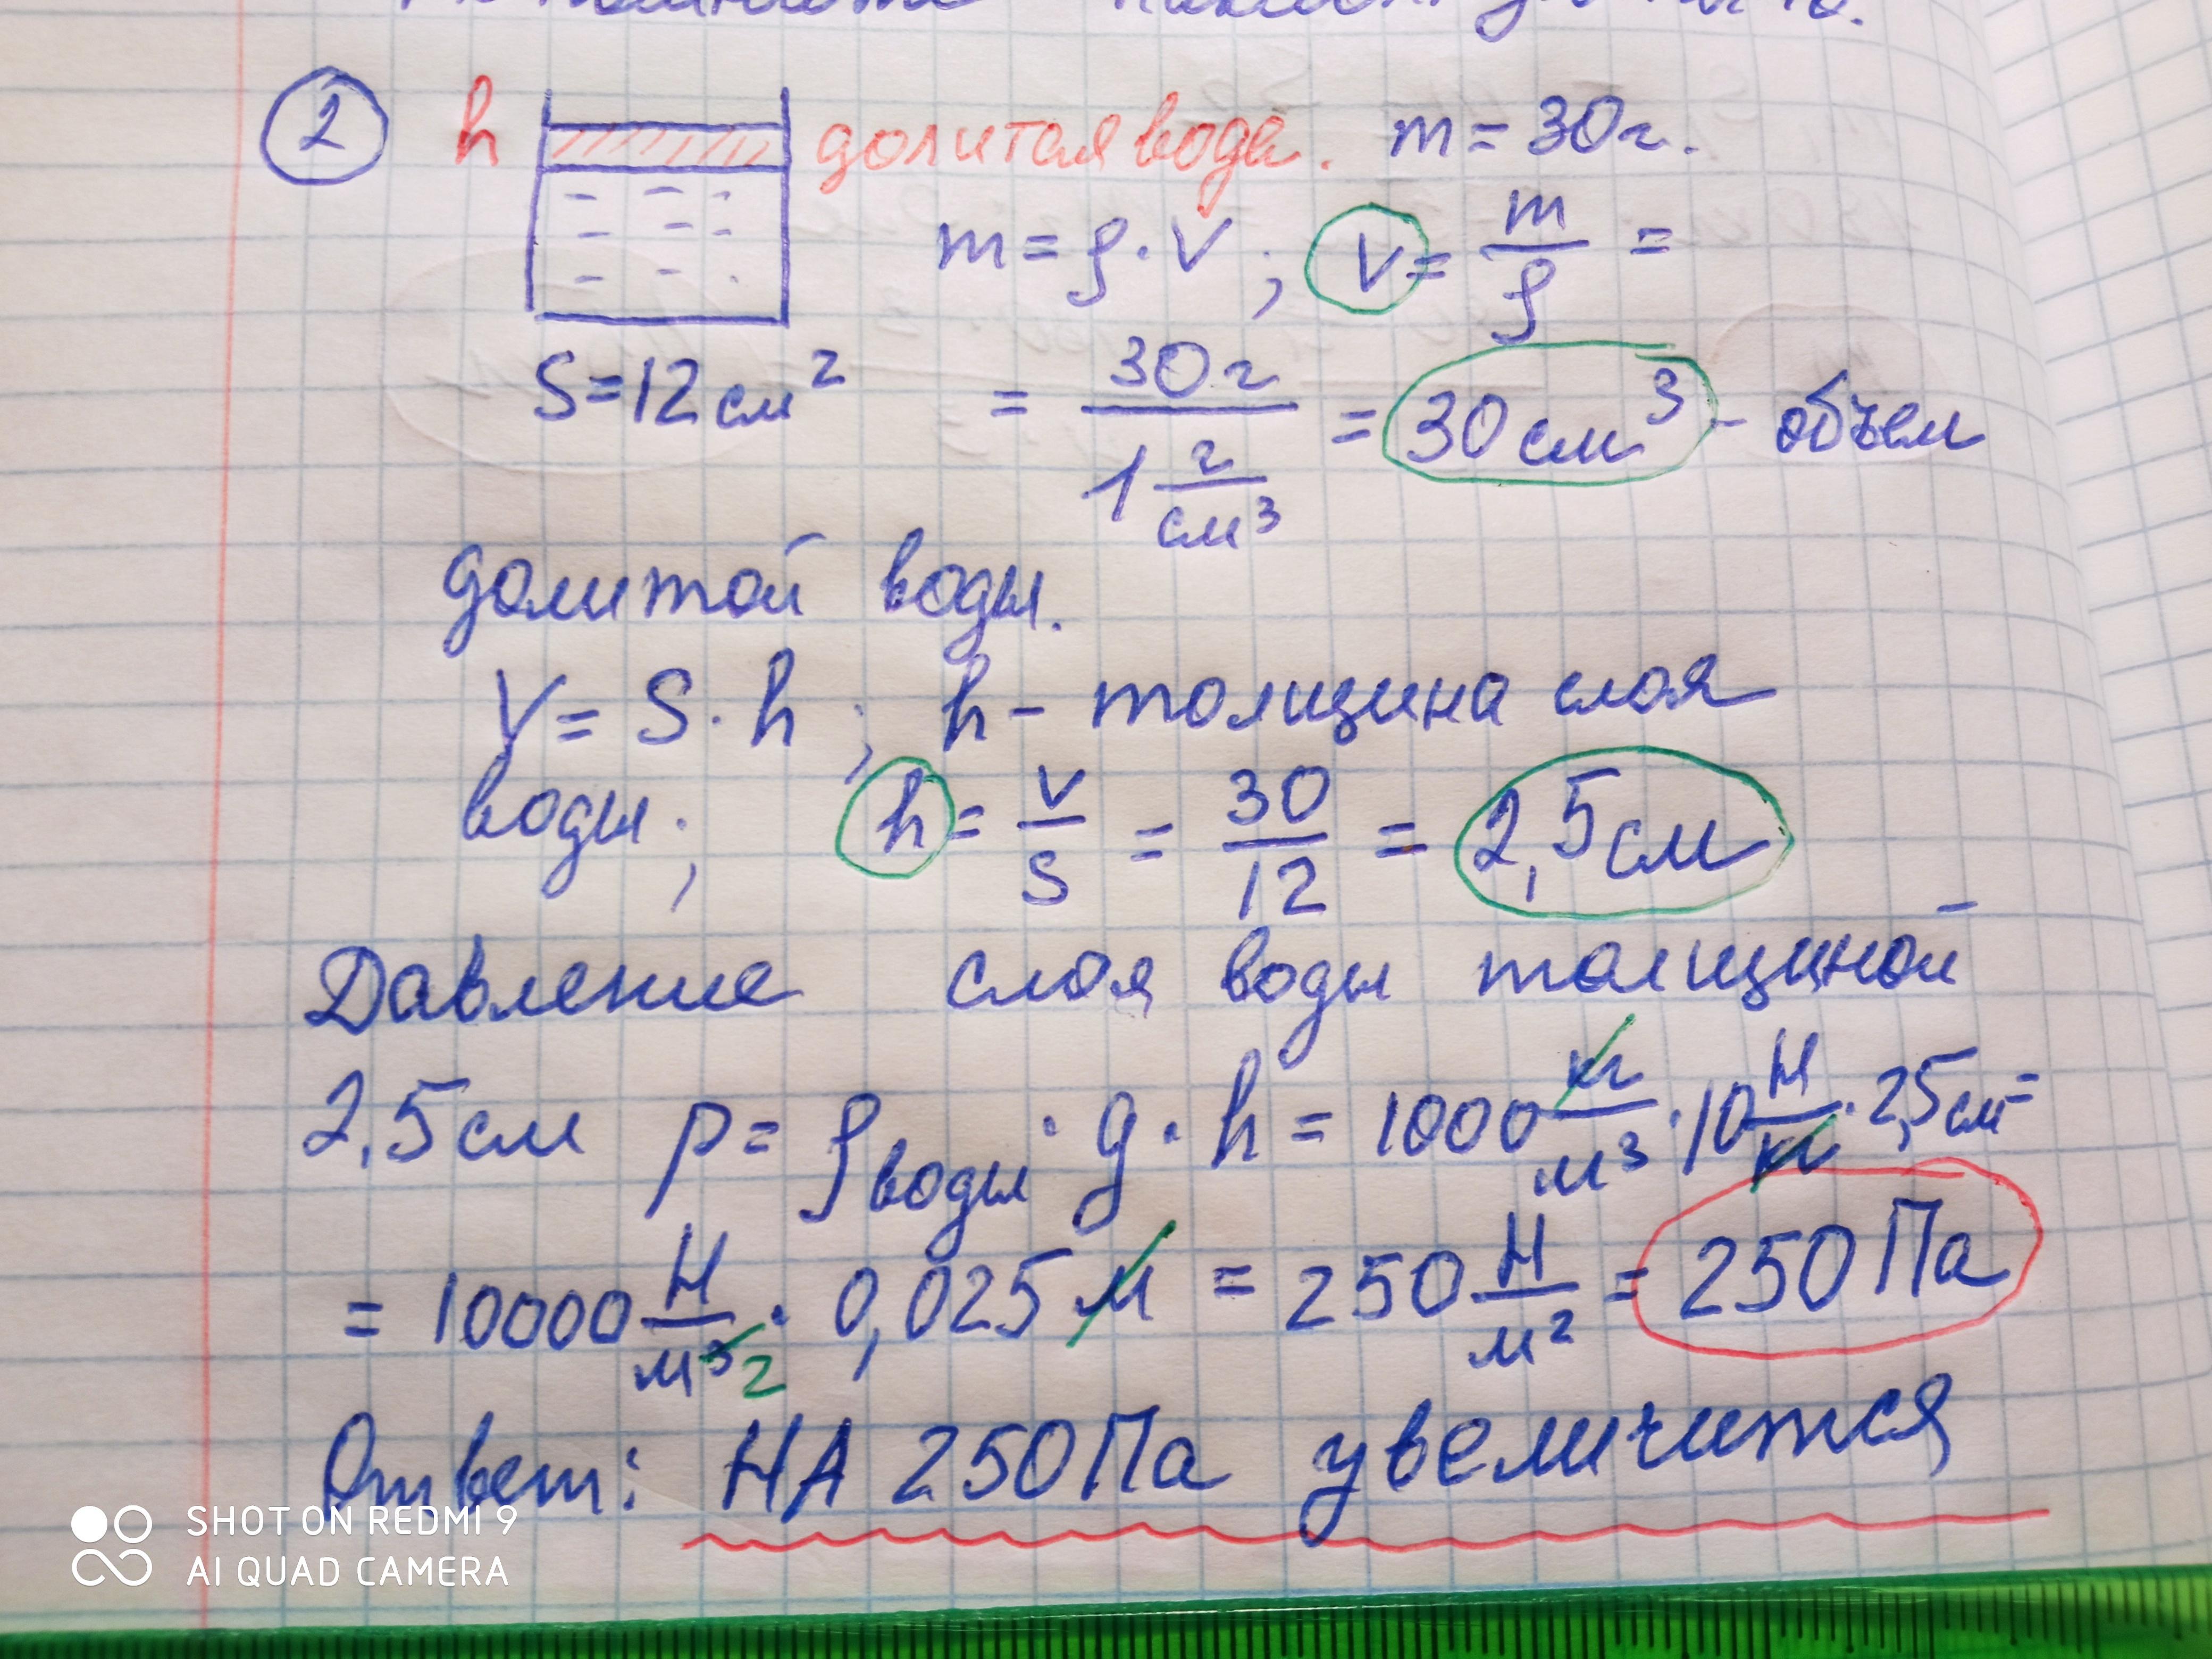 2 h долитая вода. m = 30г.
m = ρ · V ; V = m/ρ =
S = 12 см² = 30г / 1 г/см³ = 30 см³ - объем
долитой воды.
V = S · h ; h - толщина слоя
воды; h = V/S = 30/12 = 2,5 см
Давление слоя воды толщиной
2,5 см p = ρ воды · g · h = 1000 кг/м³ · 10 Н/кг · 2,5 см =
= 10000 Н/м³ 2 · 0,025 м = 250 Н/м² = 250 Па
Ответ: НА 250 Па увеличится
SHOT ON REDMI 9
AI QUAD CAMERA